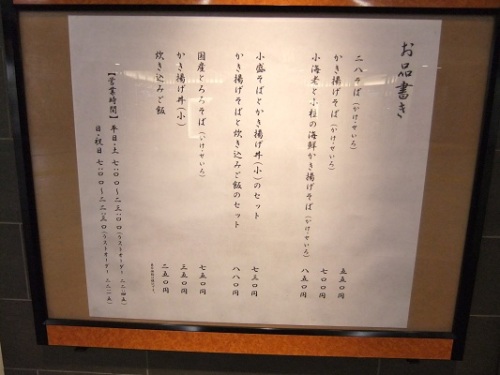 お品書き
二八そば(かけ・せいろ) 五五〇円
かき揚げそば(かけ・せいろ) 七〇〇円
小海老と小粒の海鮮かき揚げそば(かけ・せいろ) 八五〇円
小盛そばとかき揚げ丼(小)のセット 七三〇円
かき揚げそばと炊き込みご飯のセット 八八〇円
国産とろろそば(かけ・せいろ) 七五〇円
かき揚げ丼(小) 三五〇円
炊き込みご飯 二五〇円
【営業時間】平日・土 七:〇〇〜二三:〇〇(ラストオーダー 二二:四五)
日・祝日 七:〇〇〜二二:三〇(ラストオーダー 二二:一五)